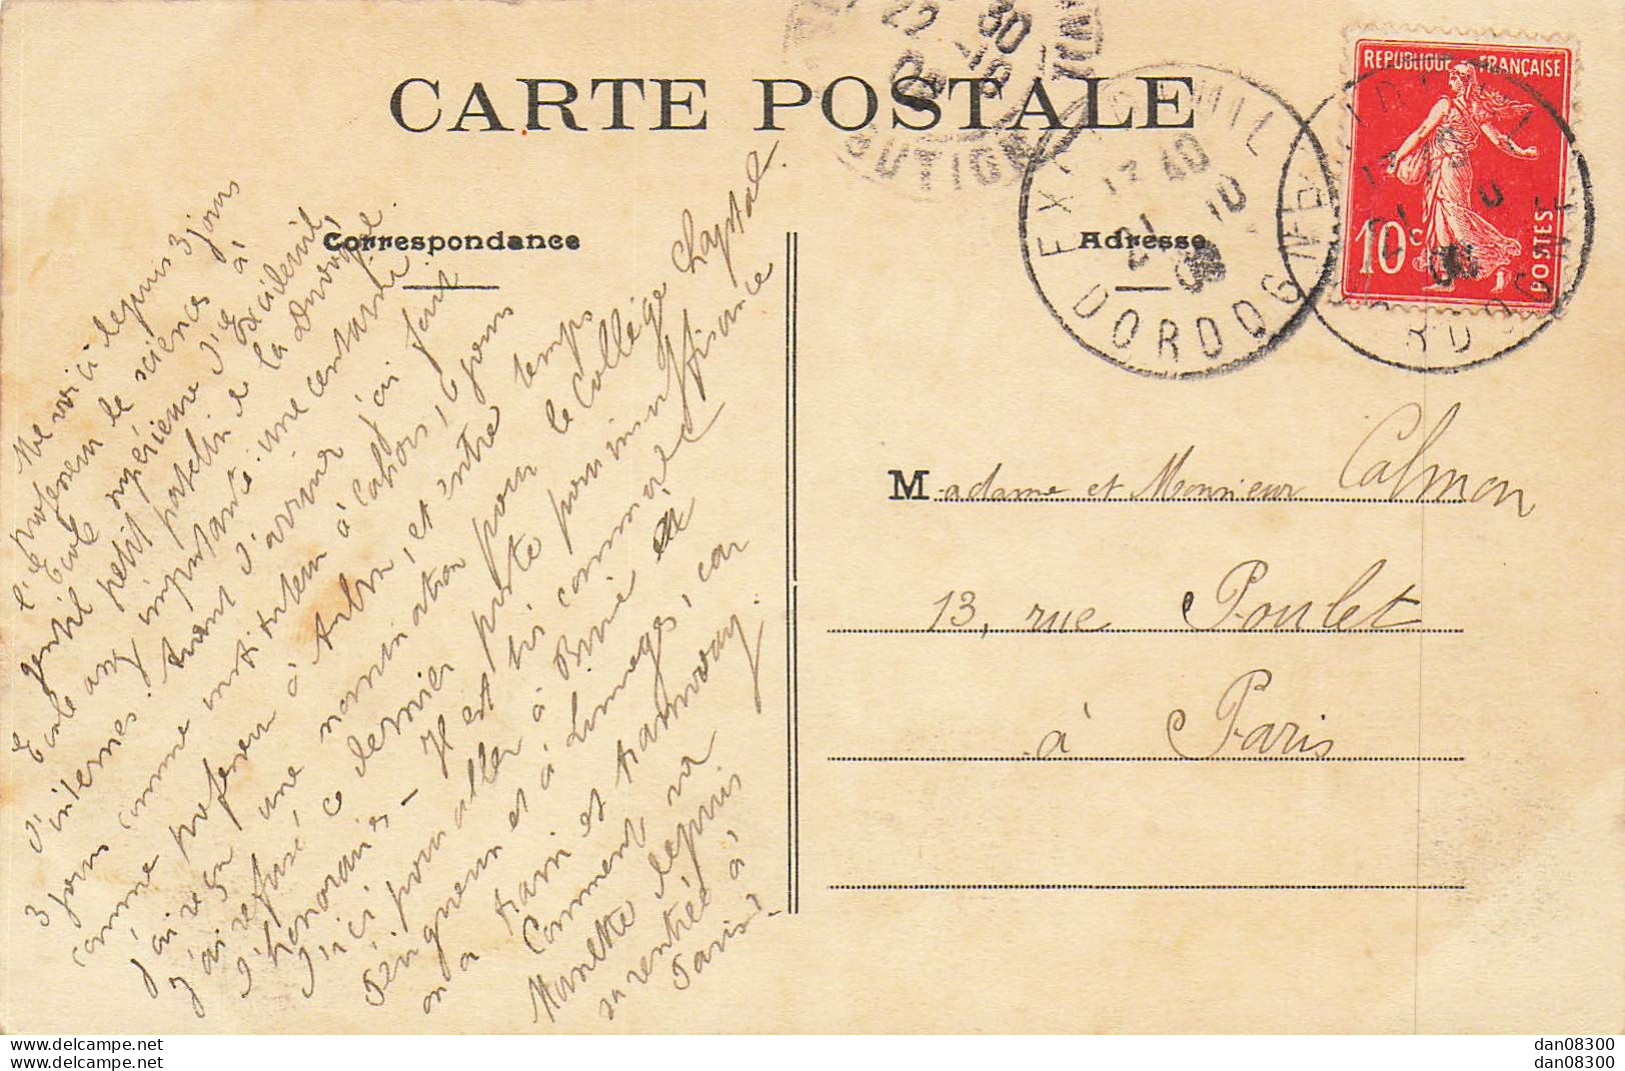 CARTE POSTALE
Correspondance
Adresse
REPUBLIQUE FRANÇAISE
10c
POSTES
EXCIDEUIL
17 40
21 10
DORDOGNE
22 30
Madame et Monsieur Calmon
13, rue Poulet
à Paris
Me voici depuis 3 jours
le professeur de sciences à
l'Ecole supérieure d'Excideuil,
gentil petit patelin de la Dordogne
Ecole assez importante : une centaine
d'internes. Avant d'arriver j'ai fait
3 jours comme instituteur à Cahors, 6 jours
comme professeur à , et entre temps
j'ai reçu une nomination pour le Collège Chaptal.
J'ai refusé ce dernier poste pour insuffisance
d'honoraires - Il est très commode
d'ici pour aller à Brive et
Périgueux et à Limoges, car
on a train et tramway.
Comment va
Manette depuis
sa rentrée à
Paris ?
dan08300
dan08300
www.delcampe.net
www.delcampe.net